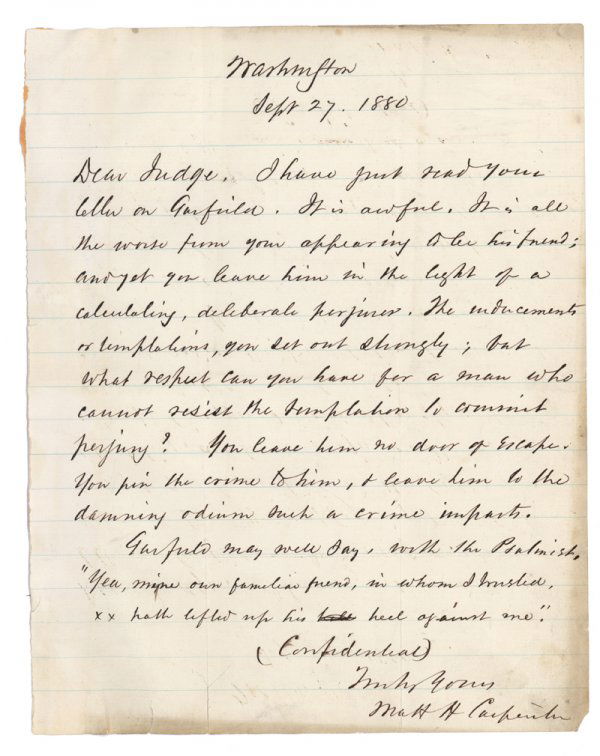 Washington
Sept 27. 1880
Dear Judge. I have just read your
letter on Garfield. It is awful. It is all
the worse from your appearing to be his friend;
and yet you leave him in the light of a
calculating, deliberate perjurer. The inducements
or temptations, you set out strongly; but
what respect can you have for a man who
cannot resist the temptation to commit
perjury? You leave him no door of escape.
You pin the crime to him, & leave him to the
damning odium such a crime imparts.
Garfield may well say, with the Psalmist,
"Yea, mine own familiar friend, in whom I trusted,
x x hath lifted up his heel against me".
(Confidential)
Truly Yours
Matt H Carpenter